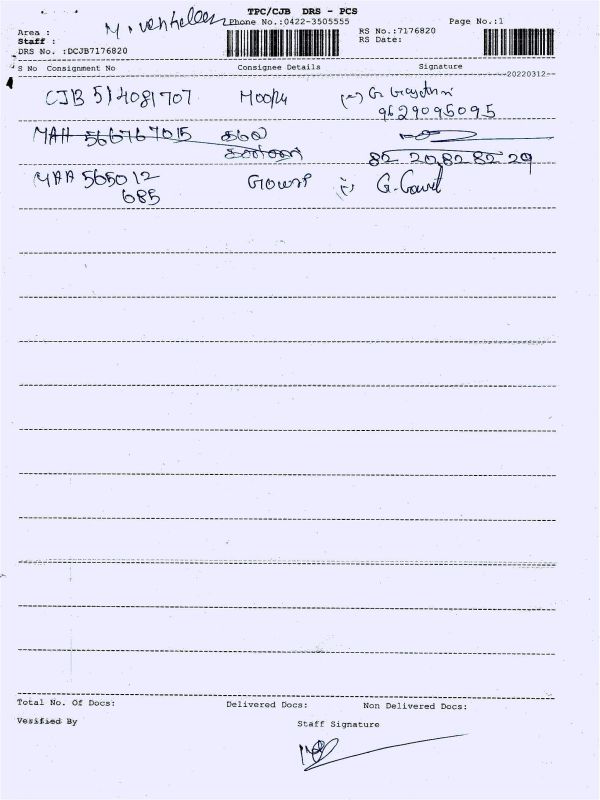 TPC/CJB DRS - PCS
Phone No.:0422-3505555
Page No.:1
Area :
Staff :
DRS No. :DCJB7176820
RS No.:7176820
RS Date:
S No Consignment No Consignee Details Signature
20220312
CJB 514081707
9629095095
MAA 566767015
82 20 82 82 29
MAA 565012
685
Gowri G. Gowri
Total No. Of Docs: Delivered Docs: Non Delivered Docs:
Verified By
Staff Signature